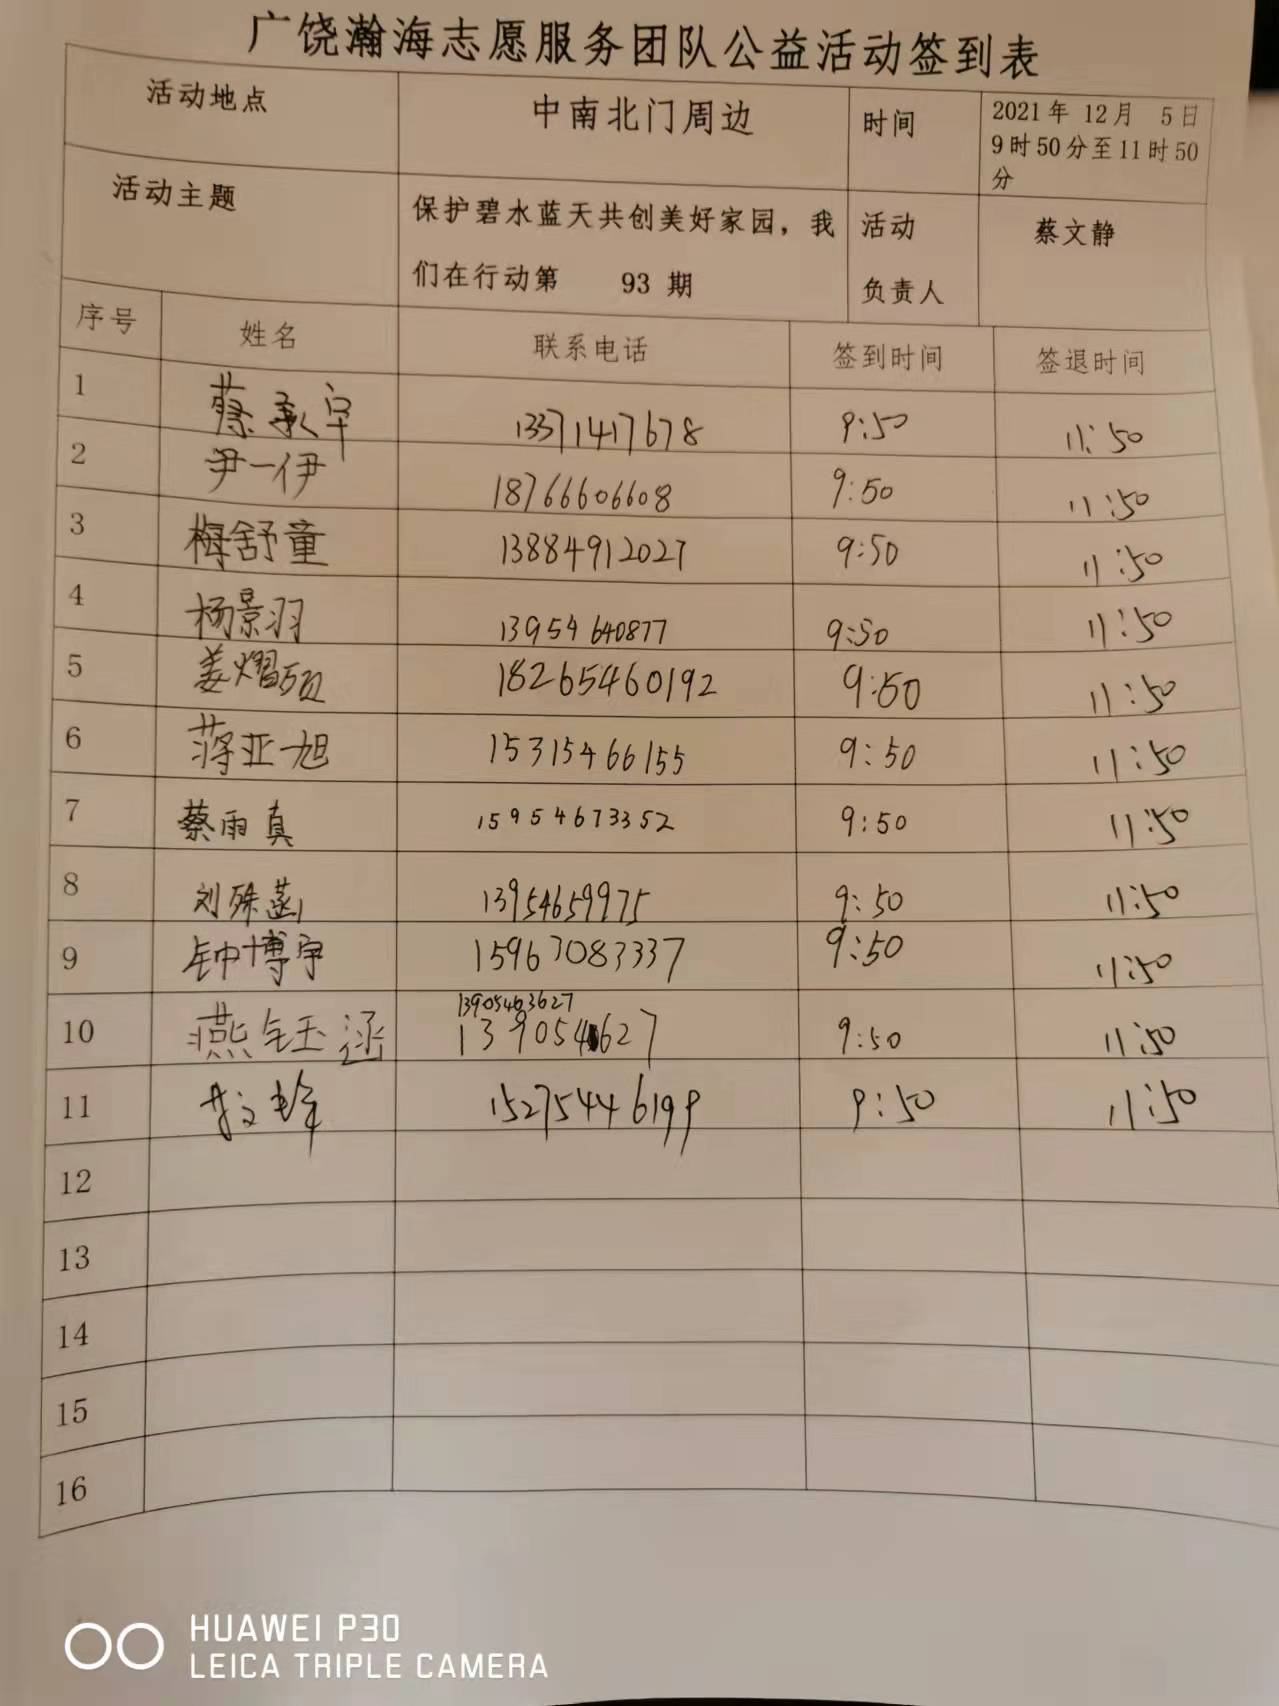 广饶瀚海志愿服务团队公益活动签到表
活动地点 中南北门周边 时间 2021年 12月 5日
9时50分至11时50
分
活动主题 保护碧水蓝天共创美好家园，我 活动 蔡文静
们在行动第 93 期 负责人
序号 姓名 联系电话 签到时间 签退时间
1 蔡承宇 13371417678 9:50 11:50
2 尹一伊 18766606608 9:50 11:50
3 梅舒童 13884912027 9:50 11:50
4 杨景羽 13954640877 9:50 11:50
5 姜熠硕 18265460192 9:50 11:50
6 蒋亚旭 15315466155 9:50 11:50
7 蔡雨真 15954673352 9:50 11:50
8 刘殊菡 13954659975 9:50 11:50
9 钟博宇 15967083337 9:50 11:50
13905463627
10 燕钰涵 139054627 9:50 11:50
11 15275446199 9:50 11:50
12
13
14
15
16
HUAWEI P30
LEICA TRIPLE CAMERA